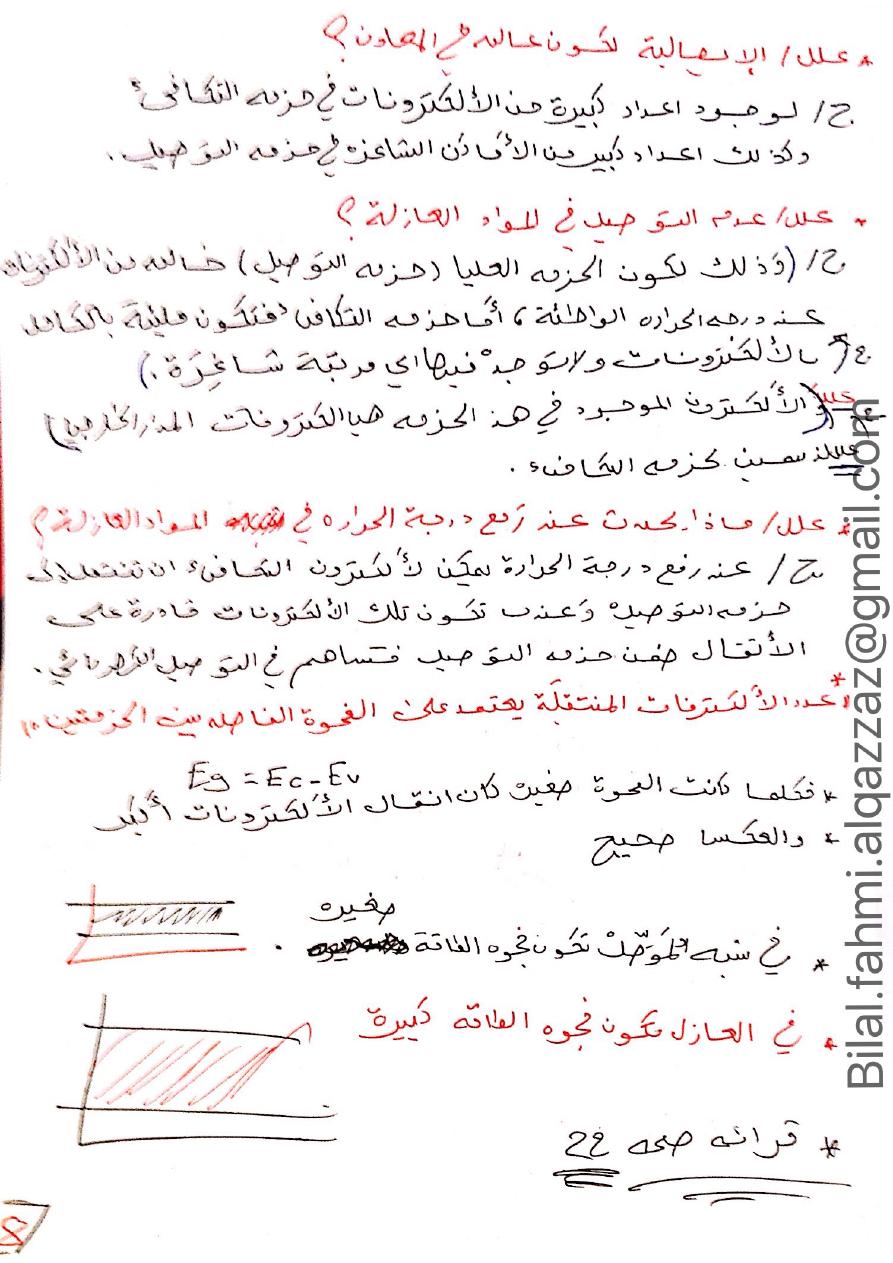 * علل/ الإيصالية تكون عاليه في المعادن؟
ج/ لوجود اعداد كبيرة من الألكترونات في حزمه التكافئ
وكذلك اعداد كبير من الأماكن الشاغره في حزمه التوصيل.
* علل/ عدم التوصيل في المواد العازلة؟
ج/ (وذلك لكون الحزمه العليا (حزمه التوصيل) خاليه من الألكترونات
عند درجه الحراره الواطئة، أما حزمه التكافئ فتكون مليئة بالكامل
بالألكترونات ولا توجد فيها اي مرتبة شاغرة.)
علل
(والألكترون الموجود في هذ الحزمه هي الكترونات المدار الخارجي)
علل
لحزمه التكافؤ.
* علل/ ماذا يحدث عند رفع درجة الحراره في المواد العازلة؟
ج/ عند رفع درجة الحرارة يمكن لألكترون التكافئ ان تنتقل الى
حزمه التوصيل وعندها تكون تلك الألكترونات قادرة على
الأنتقال ضمن حزمه التوصيل فتساهم في التوصيل الكهربائي.
* عدد الألكترونات المنتقلة يعتمد على الفجوة الفاصله بين الحزمتين
Eg = Ec - Ev
* فكلما كانت الفجوة صغيره كان انتقال الألكترونات أكبر
* والعكس صحيح
صغيره
* في شبه الموصل تكون فجوه الطاقة .
* في العازل تكون فجوه الطاقه كبيرة
* قرائه صحه 22
8
Bilal.fahmi.alqazzaz@gmail.com